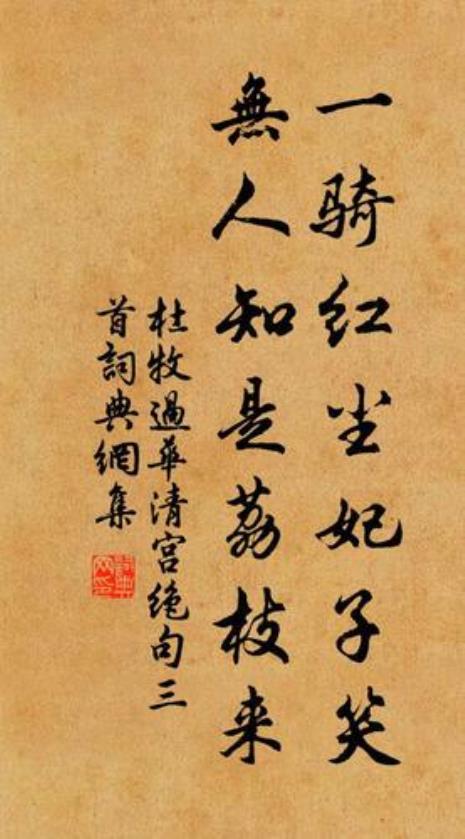 一骑红尘妃子笑
無人知是荔枝来
杜牧過華清宫绝句三
首詞典網集